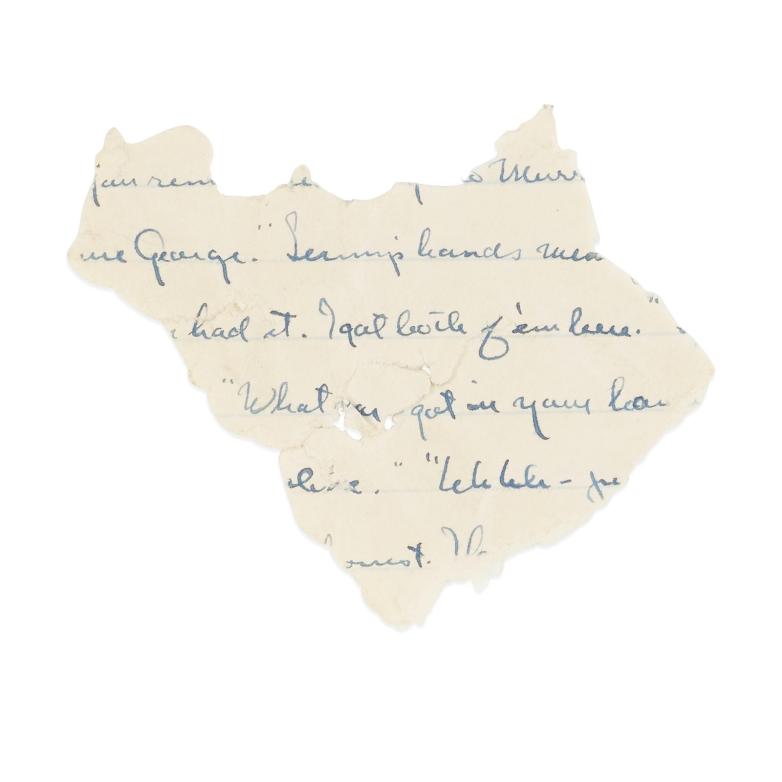 you rem o Murr
ure George." Lennys hands wen
had it. I got both of 'em here."
"What got in your han
live." "Uh Uh – ju
onest.